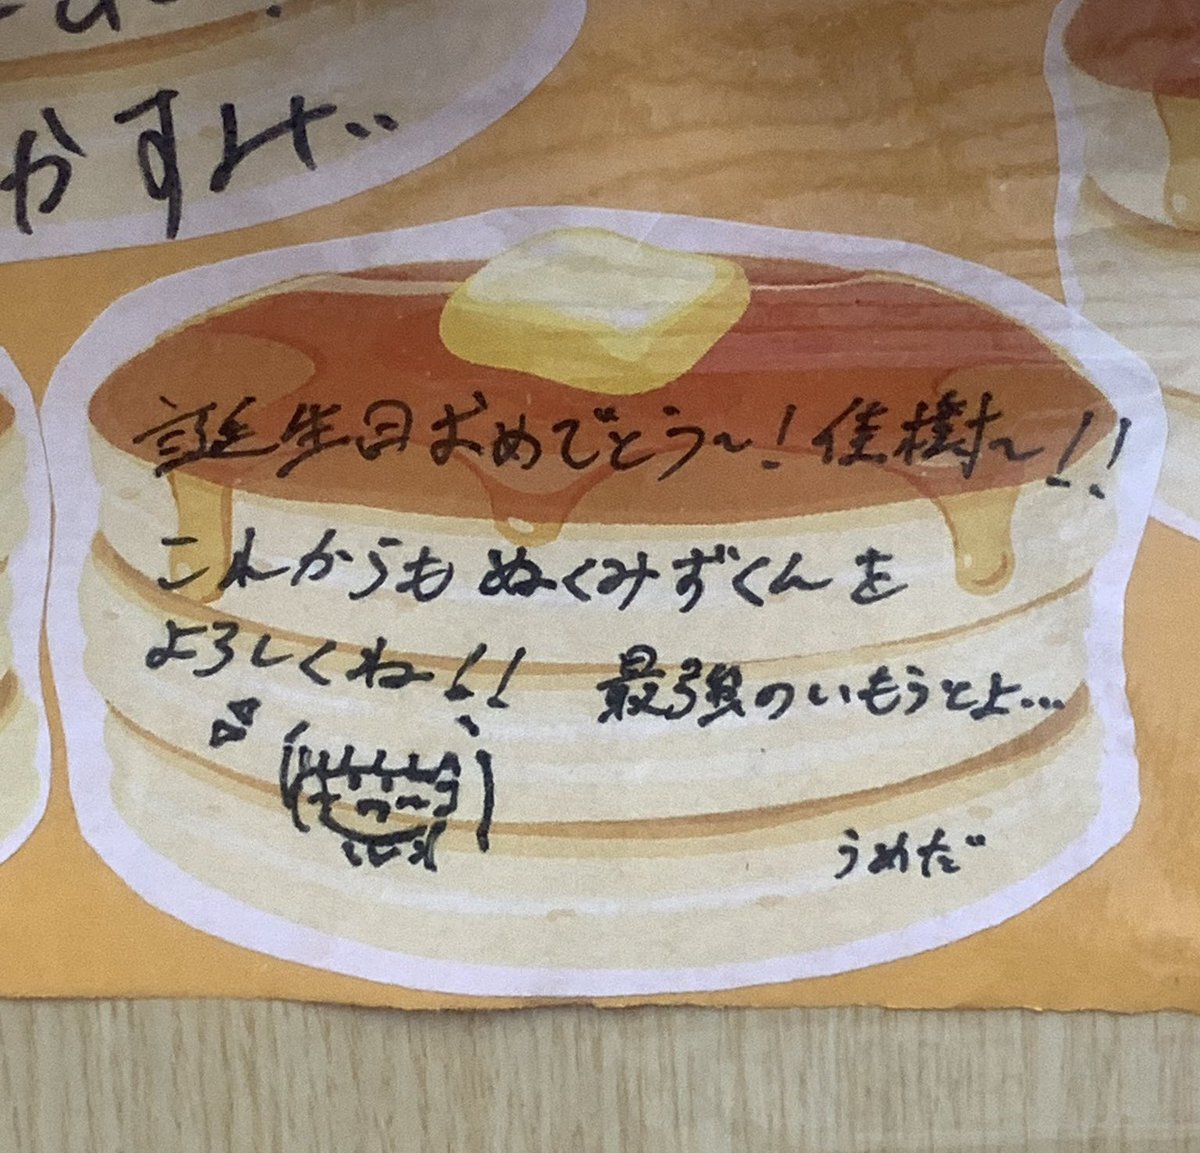 かすみ
誕生日おめでとう〜！佳樹〜!!
これからもぬくみずくんを
よろしくね!!
最強のいもうとよ…
うめだ